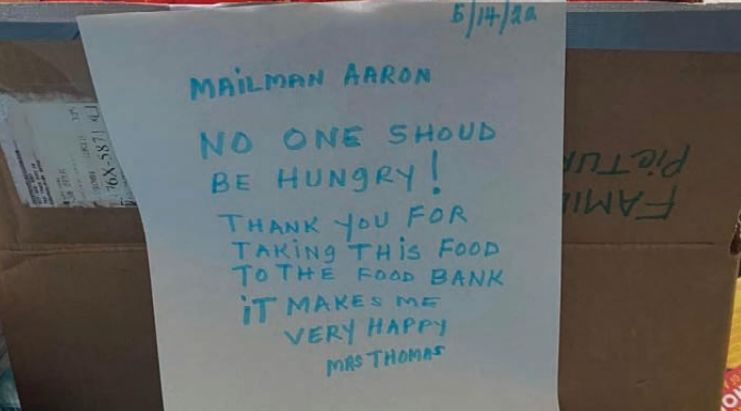 5/14/22
MAILMAN AARON
NO ONE SHOUD
BE HUNGRY!
THANK YOU FOR
TAKING THIS FOOD
TO THE FOOD BANK
IT MAKES ME
VERY HAPPY
MRS THOMAS
FAMIL
PicTUR